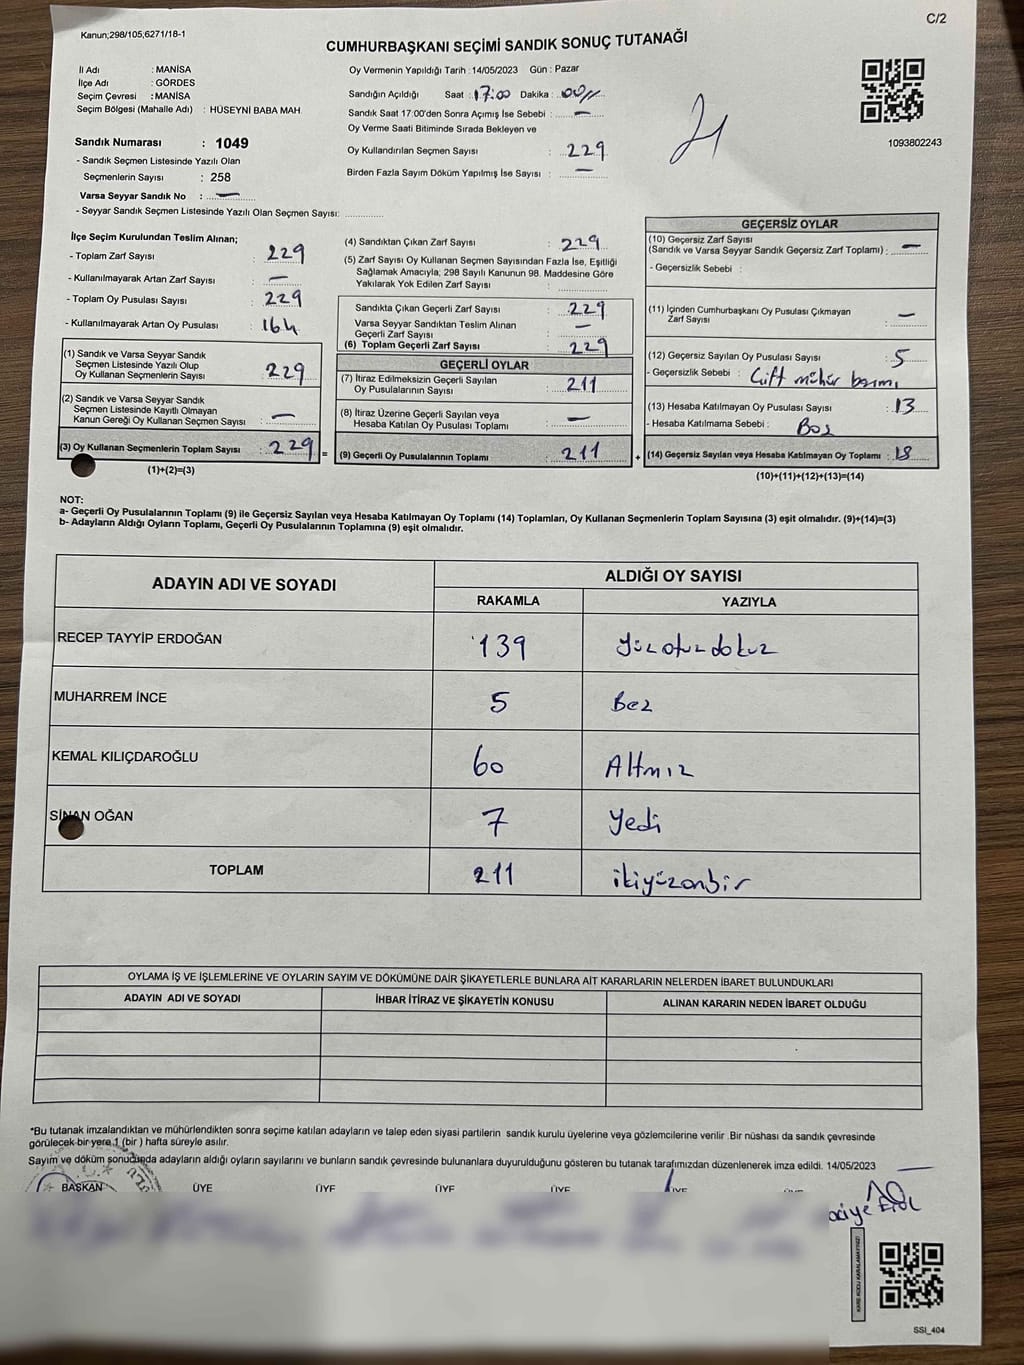 Kanun;298/105;6271/18-1
C/2
CUMHURBAŞKANI SEÇİMİ SANDIK SONUÇ TUTANAĞI
İl Adı : MANİSA
İlçe Adı : GÖRDES
Seçim Çevresi : MANİSA
Seçim Bölgesi (Mahalle Adı) : HÜSEYNİ BABA MAH.
Sandık Numarası : 1049
- Sandık Seçmen Listesinde Yazılı Olan
Seçmenlerin Sayısı : 258
Varsa Seyyar Sandık No : —
- Seyyar Sandık Seçmen Listesinde Yazılı Olan Seçmen Sayısı:
Oy Vermenin Yapıldığı Tarih : 14/05/2023 Gün : Pazar
Sandığın Açıldığı Saat : 17:00 Dakika : 00
Sandık Saat 17.00'den Sonra Açımış İse Sebebi : —
Oy Verme Saati Bitiminde Sırada Bekleyen ve
Oy Kullandırılan Seçmen Sayısı : 229
Birden Fazla Sayım Döküm Yapılmış İse Sayısı : —
21
1093802243
İlçe Seçim Kurulundan Teslim Alınan;
- Toplam Zarf Sayısı : 229
- Kullanılmayarak Artan Zarf Sayısı : —
- Toplam Oy Pusulası Sayısı : 229
- Kullanılmayarak Artan Oy Pusulası : 164
(1) Sandık ve Varsa Seyyar Sandık
Seçmen Listesinde Yazılı Olup
Oy Kullanan Seçmenlerin Sayısı : 229
(2) Sandık ve Varsa Seyyar Sandık
Seçmen Listesinde Kayıtlı Olmayan
Kanun Gereği Oy Kullanan Seçmen Sayısı : —
(3) Oy Kullanan Seçmenlerin Toplam Sayısı : 229 =
(1)+(2)=(3)
(4) Sandıktan Çıkan Zarf Sayısı : 229
(5) Zarf Sayısı Oy Kullanan Seçmen Sayısından Fazla İse, Eşitliği
Sağlamak Amacıyla; 298 Sayılı Kanunun 98. Maddesine Göre
Yakılarak Yok Edilen Zarf Sayısı :
Sandıkta Çıkan Geçerli Zarf Sayısı : 229
Varsa Seyyar Sandıktan Teslim Alınan
Geçerli Zarf Sayısı : —
(6) Toplam Geçerli Zarf Sayısı : 229
GEÇERLİ OYLAR
(7) İtiraz Edilmeksizin Geçerli Sayılan
Oy Pusulalarının Sayısı : 211
(8) İtiraz Üzerine Geçerli Sayılan veya
Hesaba Katılan Oy Pusulası Toplamı : —
(9) Geçerli Oy Pusulalarının Toplamı : 211 +
GEÇERSİZ OYLAR
(10) Geçersiz Zarf Sayısı
(Sandık ve Varsa Seyyar Sandık Geçersiz Zarf Toplamı) : —
- Geçersizlik Sebebi :
(11) İçinden Cumhurbaşkanı Oy Pusulası Çıkmayan
Zarf Sayısı : —
(12) Geçersiz Sayılan Oy Pusulası Sayısı : 5
- Geçersizlik Sebebi : Çift mühür basımı
(13) Hesaba Katılmayan Oy Pusulası Sayısı : 13
- Hesaba Katılmama Sebebi : Boş
(14) Geçersiz Sayılan veya Hesaba Katılmayan Oy Toplamı : 18
(10)+(11)+(12)+(13)=(14)
NOT:
a- Geçerli Oy Pusulalarının Toplamı (9) ile Geçersiz Sayılan veya Hesaba Katılmayan Oy Toplamı (14) Toplamları, Oy Kullanan Seçmenlerin Toplam Sayısına (3) eşit olmalıdır. (9)+(14)=(3)
b- Adayların Aldığı Oyların Toplamı, Geçerli Oy Pusulalarının Toplamına (9) eşit olmalıdır.
ADAYIN ADI VE SOYADI
ALDIĞI OY SAYISI
RAKAMLA YAZIYLA
RECEP TAYYİP ERDOĞAN 139 Yüzotuzdokuz
MUHARREM İNCE 5 Beş
KEMAL KILIÇDAROĞLU 60 Altmış
SİNAN OĞAN 7 Yedi
TOPLAM 211 ikiyüzonbir
OYLAMA İŞ VE İŞLEMLERİNE VE OYLARIN SAYIM VE DÖKÜMÜNE DAİR ŞİKAYETLERLE BUNLARA AİT KARARLARIN NELERDEN İBARET BULUNDUKLARI
ADAYIN ADI VE SOYADI İHBAR İTİRAZ VE ŞİKAYETİN KONUSU ALINAN KARARIN NEDEN İBARET OLDUĞU
*Bu tutanak imzalandıktan ve mühürlendikten sonra seçime katılan adayların ve talep eden siyasi partilerin sandık kurulu üyelerine veya gözlemcilerine verilir .Bir nüshası da sandık çevresinde
görülecek bir yere 1 (bir ) hafta süreyle asılır.
Sayım ve döküm sonucunda adayların aldığı oyların sayılarını ve bunların sandık çevresinde bulunanlara duyurulduğunu gösteren bu tutanak tarafımızdan düzenlenerek imza edildi. 14/05/2023
BAŞKAN ÜYE ÜYE ÜYE ÜYE ÜYE ÜYE
KARE KODU KARALAMAYINIZ!
SSI_404